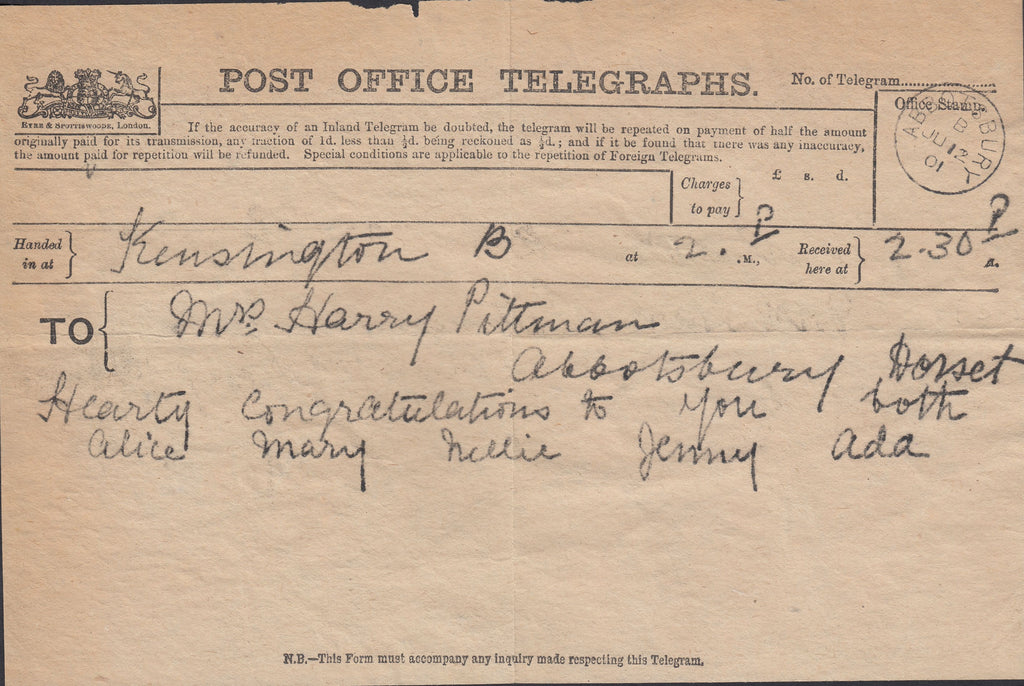 POST OFFICE TELEGRAPHS.
No. of Telegram
Office Stamp.
ABBOTSBURY
B
JU 12
01
EYRE & SPOTTISWOODE, London.
If the accuracy of an Inland Telegram be doubted, the telegram will be repeated on payment of half the amount
originally paid for its transmission, any fraction of 1d. less than ½d. being reckoned as ½d.; and if it be found that there was any inaccuracy,
the amount paid for repetition will be refunded. Special conditions are applicable to the repetition of Foreign Telegrams.
Charges to pay } £ s. d.
Handed in at } Kensington B at 2. P .M., Received here at } 2.30 P
TO { Mrs. Harry Pittman
Abbotsbury Dorset
Hearty congratulations to you both
Alice Mary Nellie Jenny Ada
N.B.—This Form must accompany any inquiry made respecting this Telegram.